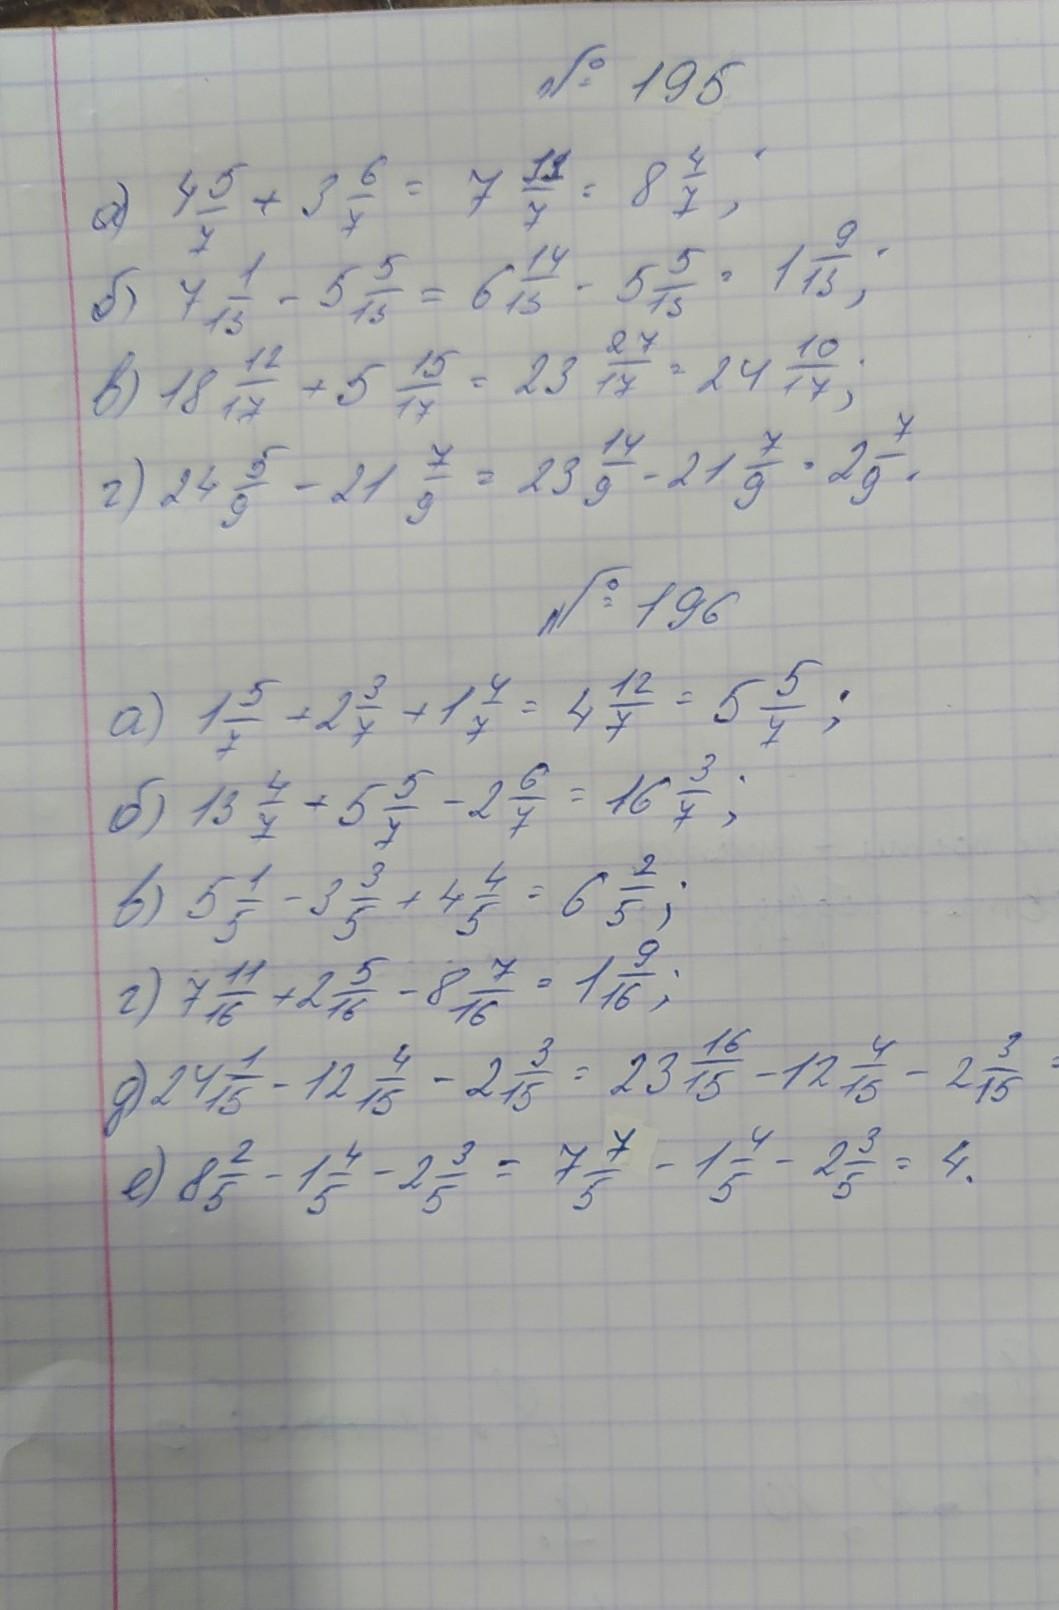 № 195
а) 4 5/7 + 3 6/7 = 7 11/7 = 8 4/7;
б) 7 1/13 - 5 5/13 = 6 14/13 - 5 5/13 = 1 9/13;
в) 18 12/17 + 5 15/17 = 23 27/17 = 24 10/17;
г) 24 5/9 - 21 7/9 = 23 14/9 - 21 7/9 = 2 7/9.
№ 196
а) 1 5/7 + 2 3/7 + 1 4/7 = 4 12/7 = 5 5/7;
б) 13 4/7 + 5 5/7 - 2 6/7 = 16 3/7;
в) 5 1/5 - 3 3/5 + 4 4/5 = 6 2/5;
г) 7 11/16 + 2 5/16 - 8 7/16 = 1 9/16;
д) 24 1/15 - 12 4/15 - 2 3/15 = 23 16/15 - 12 4/15 - 2 3/15 =
е) 8 2/5 - 1 4/5 - 2 3/5 = 7 7/5 - 1 4/5 - 2 3/5 = 4.